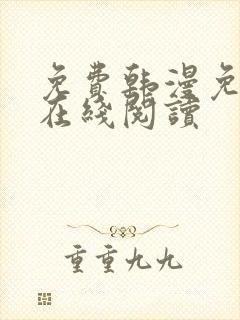 免費韩漫免
在綫閱讀
重重九九